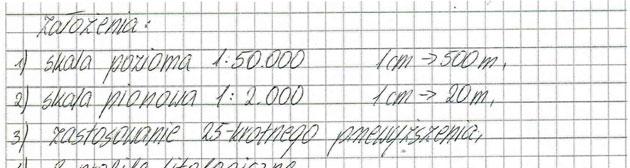 założenia:
1) skala pozioma 1:50.000 1cm → 500m,
2) skala pionowa 1:2.000 1cm → 20m,
3) zastosowanie 25-krotnego przewyższenia,